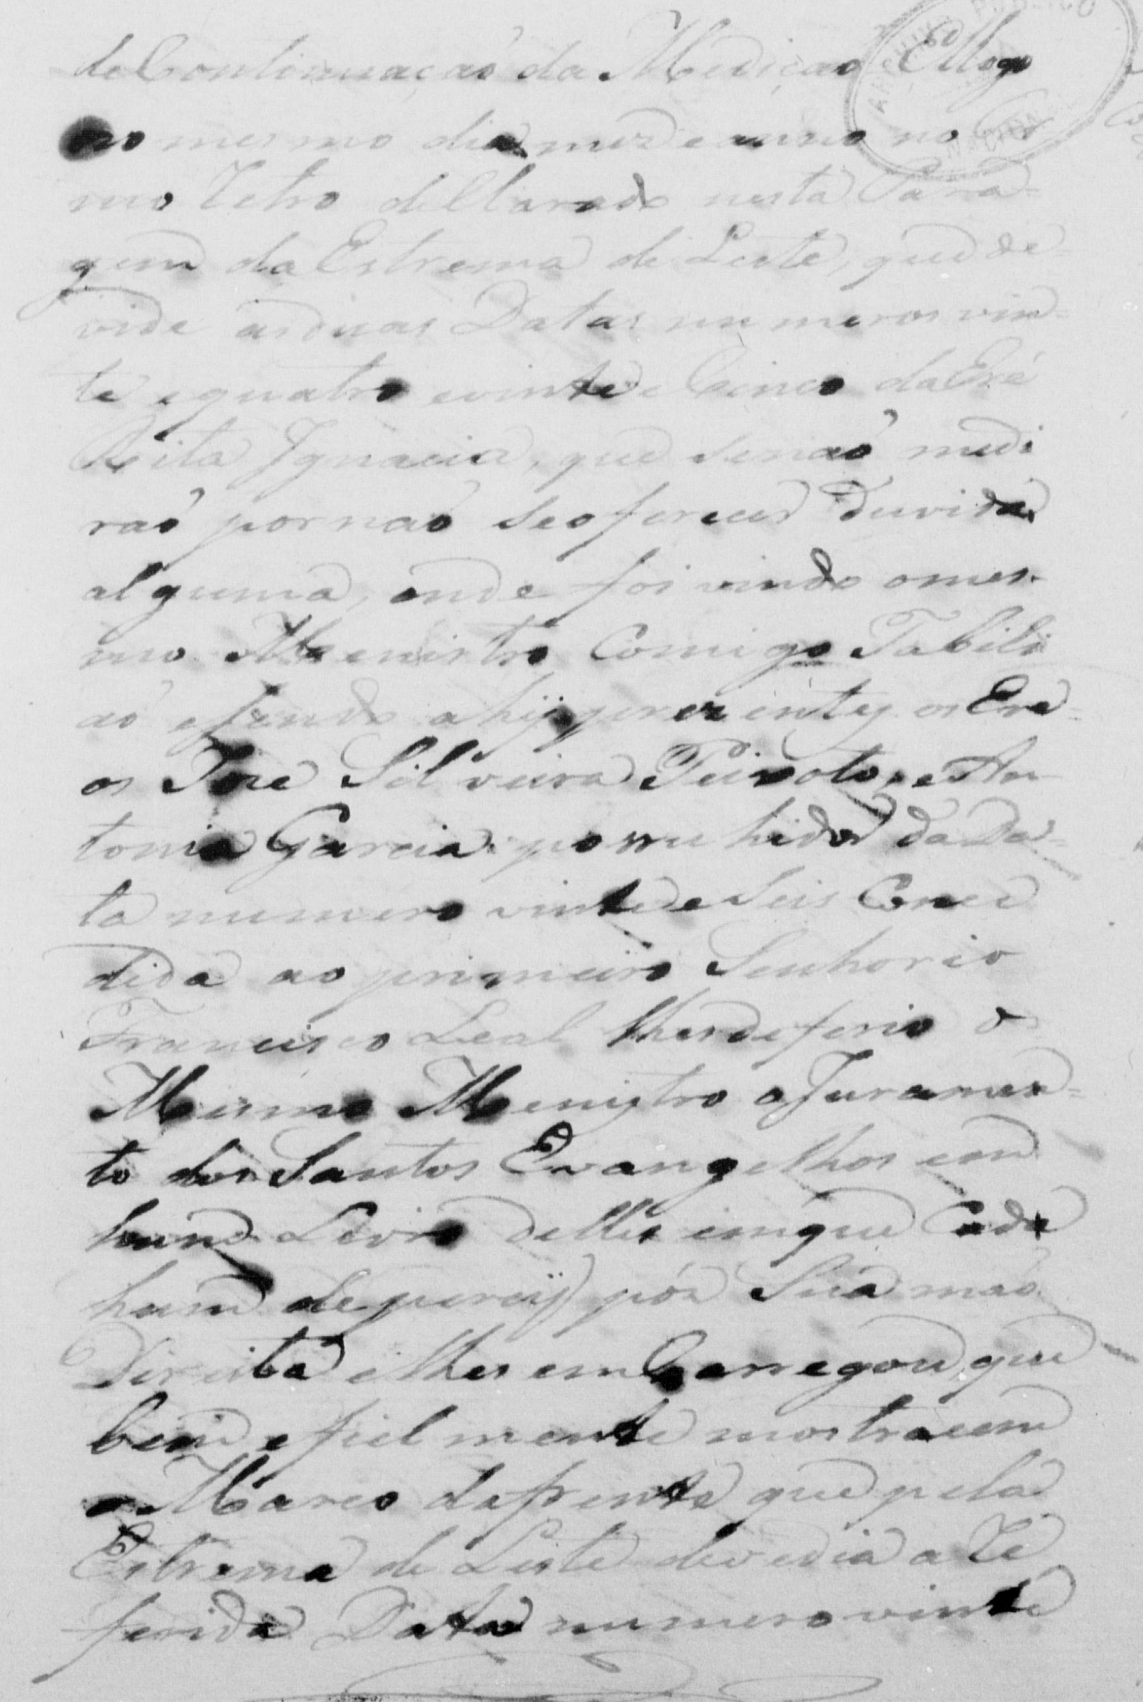 de Continuaçaõ da Mediçaõ Elogo
no mesmo dia mez eanno no
mo Retro declarado nesta Para=
gem da Estrema de Leste, que de=
vide asduas Datas numeros vin=
te equatro evinte e Cinco da Eré
Rita Ignacia, que senaõ medi
raõ pornaõ seoferecer duvida
alguma, onde foi vindo omes=
mo Menistro Comigo Tabili
aõ esendo ahÿ prezentes os Ere=
os Joze Silveira Peixoto, e An
tonia Garcia possuhidor da Da=
ta numero vinte e Seis Conce
dida ao primeiro Senhorio
Francisco Leal lhesdeferio o
Mesmo Menistro o Juramen=
to dos Santos Evangelhos em
hum Livro delles emque Cada
hum de persÿ pós Sua maõ
Direita elhes emCarregou que
bem efielmente mostracem
o Marco dafrente que pela
Estrema de Leste devedia a Re
ferida Data numero vinte